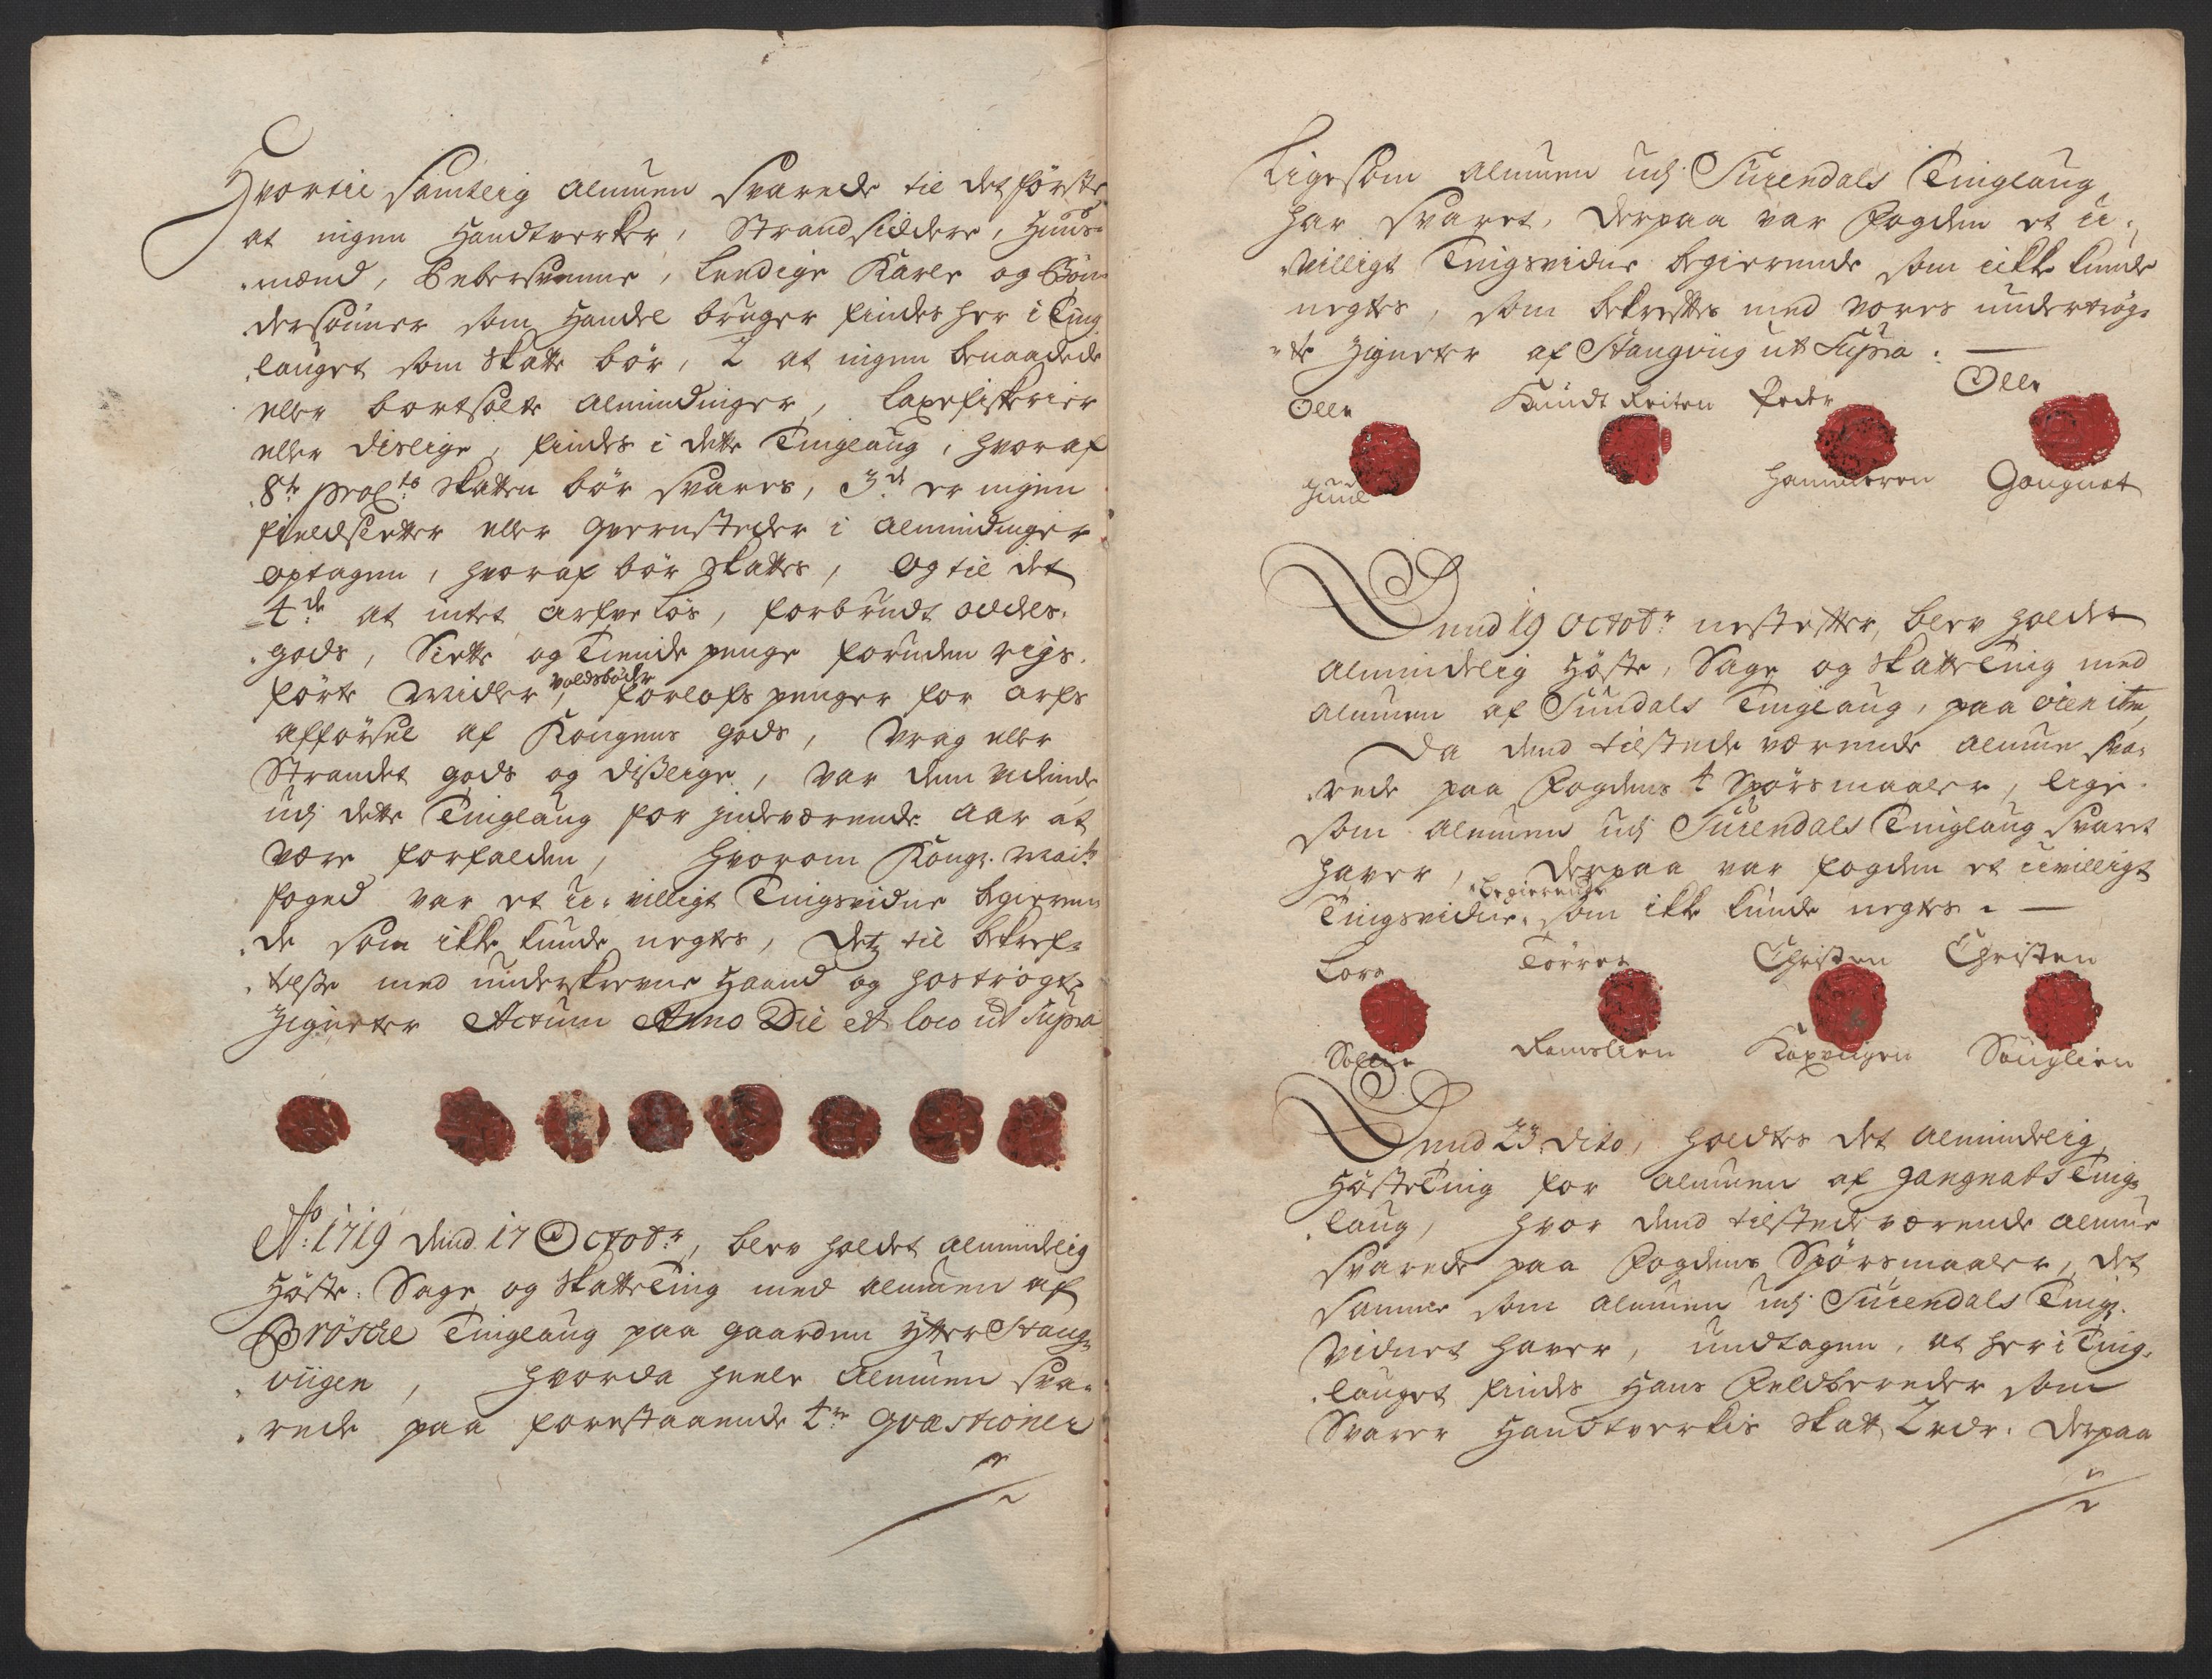 Hvortil samtlig Almuen svarede til det første
at ingen Handtverker, Strandsiddere, Huus-
mænd, Pebersvenne, Lendige Karle og Bøn-
dersønner som Handel bruger findes her i Ting
lauget som skatte bør, 2 at ingen benaadede
eller bortsolte Almindinger, Laxefiskerier
eller dislige, findes i dette Tinglaug, hvoraf
8te proCto skatten bør svares, 3de er ingen
fieldsletter eller Qvernsteder i Almindinger
optagen, hvoraf bør skattes, Og til det
4de at intet arfveløs, forbrudt oddels-
gods, Siette og Tiende penge foruden rigs.
førte Midler, voldsbøder forlofs penger for arfs
afførsel af Kongens gods, Vrag eller
Strandet gods og disslige, var dem vidende
udj dette Tinglaug for jndeværende Aar at
være forfalden, hvorom Kongl. Mait
foged var et U-villigt Tingsvidne begieren-
de som ikke kunde negtes, dets til bekref-
telsse med underskrevne Haand og hostrøgte
Zigneter Actum Anno Die et loco ut Supra

Ao 1719 dend 17 Octobr, blev holdet almindelig
Høste- Sage og Skatte Ting med almuen af
Brøske Tinglaug paa gaarden Ytter Stang-
viigen, hvorda heele Almuen sva-
rede paa forestaaende 4re Qvæstioner

Ligesom Almuen udj Surendals Tinglaug
har svaret, derpaa var Fogden et U-
villigt Tingsvidne begierende som ikke kunde
negtes, som bekreftes med vores undertrøg-
te Zigneter af Stangvig ut Supra.
Olle Knudt Reiten Peder Olle
Hammeren Gangnat

Dend 19 Octobr nestefter, blev holdet
almindelig Høste, Sage og Skatte Ting med
almuen af Sundals Tinglaug, paa
Da dend tilstede værende Almue sva-
rede paa Fogdens 4 Spørsmaaler, lige-
som almuen udj Surendals Tinglaug svaret
haver, derpaa var fogden et uvilligt
Tingsvidne begierende som ikke kunde negtes.
Lars Torres Christen Christen
Ramslien Sauglien

Dend 23 dito, holdtes det almindelig
Høste Ting for Almuen af Gangnats Ting-
laug, hvor dend tilstedeværende almue
svarede paa Fogdens Spørsmaaler, det
samme som almuen udj Surendals Tings
Vidnet haver, undtagen, at her i Ting-
lauget findes Hans Feldbereder som
Svarer Handtverkis Skatt 2 rdr. Derpaa